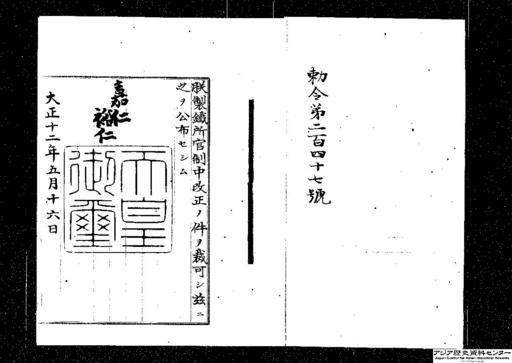 勅令第二百四十七號
朕製鐵所官制中改正ノ件ヲ裁可シ茲ニ
之ヲ公布セシム
嘉仁
裕仁
天皇御璽
大正十二年五月十六日
アジア歴史資料センター
Japan Center for Asian Historical Records